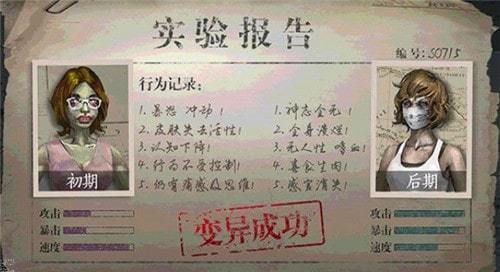 实验报告
编号:S0715
行为记录:
1. 暴怒 冲动!
2. 皮肤失去活性!
3. 认知下降!
4. 行为不受控制!
5. 仍有痛感及思维!
1. 神志全无!
2. 全身溃烂!
3. 无人性 嗜血!
4. 喜食生肉!
5. 感官消失!
初期
后期
攻击
暴击
速度
变异成功
攻击
暴击
速度